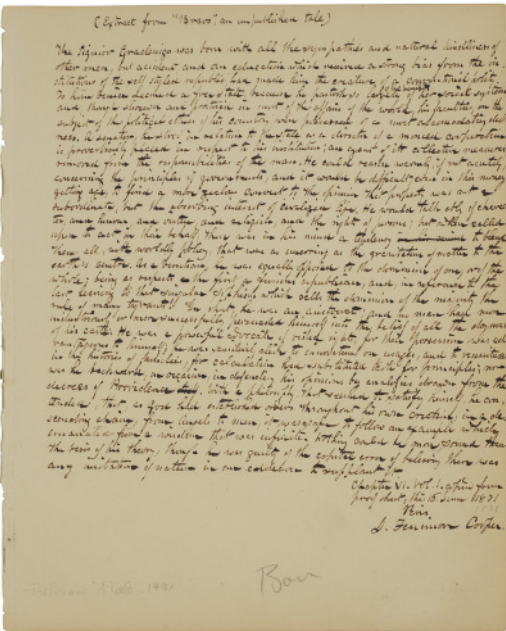 (Extract from "Bravo", an unpublished tale)
The Signior Gradenigo was born with all the sympathies and natural kindliness of
other men, but accident and an education which received a strong bias from the in
stitutions of the self styled republic had made him the creature of a conventional policy.
To him Venice seemed a free state, because he partook so largely of the benefits of her social system
and though shrewd and practised in most of the affairs of the world, his faculties, on the
subject of the political ethics of his country were possessed of a most accommodating dul
ness. A senator, he stood in relation to the state as a director of a monied corporation
is proverbially placed in respect to his institution; an agent of its collective measures
removed from the responsibilities of the man. He could reason warmly, if not acutely
concerning the principles of government, and it would be difficult even in this money
getting age, to find a more zealous convert to the opinion that property was not a
subordinate, but the absorbing interest of civilized life. He would talk ably of charac
ter, and honour and virtue, and religion, and the right of persons; but when called
upon to act in their behalf, there was in his mind a tendency to blend
them all, with worldly policy, that was as unerring as the gravitation of matter to the
earth's centre. As a Venetian, he was equally opposed to the domination of one, or of the
whole; being as respects the first a furious republican, and, in reference to the
last, leaning to that singular sophism which calls the dominion of the majority the
rule of many tyrants! In short, he was an aristocrat; and no man had more
industriously, or more successfully persuaded himself into the belief of all the dogmas
of his caste. He was a powerful advocate of vested rights, for their possession was ad
vantageous to himself; he was sensitive alive to innovations on usages, and to vicissitudes
in the histories of families, for calculation had substituted taste for principles; nor
was he backward on occasion in defending his opinions by analogies drawn from the
decrees of Providence. With a philosophy that seemed to satisfy himself, he con
tended that, as God had established orders throughout his own creation, in a de
scending chain, from angels to men, it was safe to follow an example which
emanated from a wisdom that was infinite. Nothing could be more sound than
the basis of his theory, though he was guilty of the capital error of believing there was
any imitation of nature in an endeavor to supplant it.
Chapter VI. Vol. 1. copied from
proof sheet, this 15 June 1831
Paris
J. Fenimore Cooper.